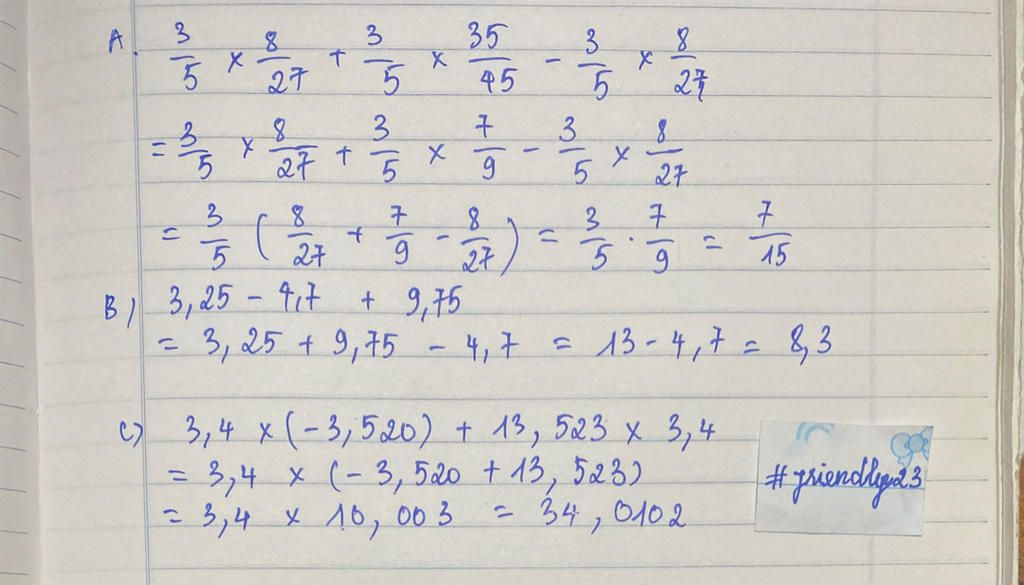 A. 3/5 × 8/27 + 3/5 × 35/45 - 3/5 × 8/27
= 3/5 × 8/27 + 3/5 × 7/9 - 3/5 × 8/27
= 3/5 ( 8/27 + 7/9 - 8/27 ) = 3/5 . 7/9 = 7/15
B) 3,25 - 4,7 + 9,75
= 3,25 + 9,75 - 4,7 = 13 - 4,7 = 8,3
C) 3,4 × (-3,520) + 13,523 × 3,4
= 3,4 × (-3,520 + 13,523)
= 3,4 × 10,003 = 34,0102
#friendly23